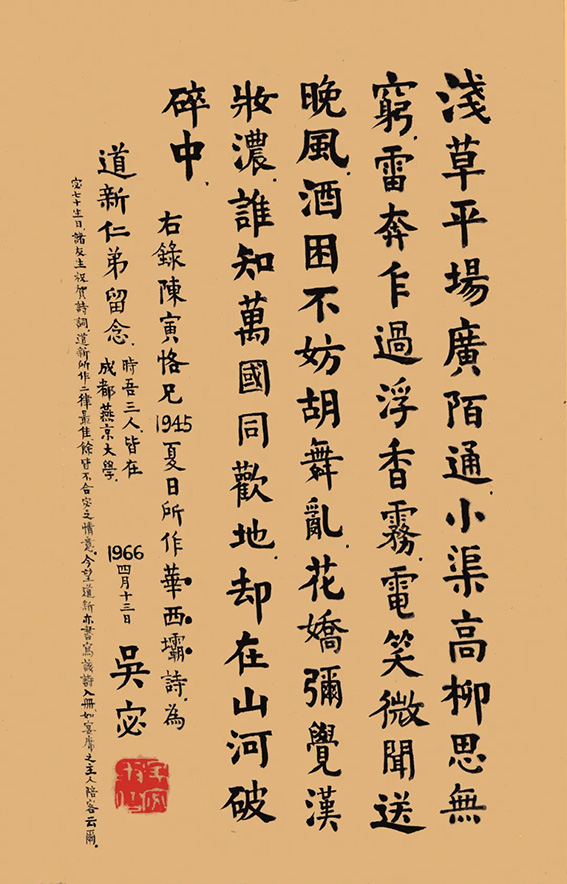 淺草平場廣陌通.小渠高柳思無
窮.雷奔乍過浮香霧.電笑微聞送
晚風.酒困不妨胡舞亂.花嬌彌覺漢
妝濃.誰知萬國同歡地.却在山河破
碎中.
右錄陳寅恪兄1945夏日所作華西壩詩.為
道新仁弟留念.
時吾三人.皆在
成都燕京大學.
1966四月十三日
吳宓
宓七十生日.諸友生祝賀詩詞.道新所作二律最佳.餘皆不合宓之情意.今望道新亦書寫該詩入冊.如宴席之主人陪客云爾.